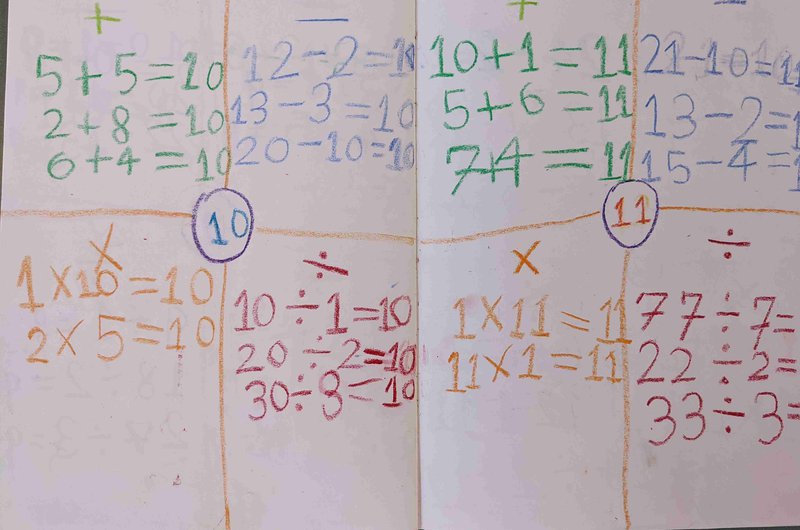 +
5+5=10
2+8=10
6+4=10
−
12−2=10
13−3=10
20−10=10
10
×
1×10=10
2×5=10
÷
10÷1=10
20÷2=10
30÷8=10
+
10+1=11
5+6=11
7+4=11
−
21−10=11
13−2=1
15−4=1
11
×
1×11=11
11×1=11
÷
77÷7=
22÷2=
33÷3=